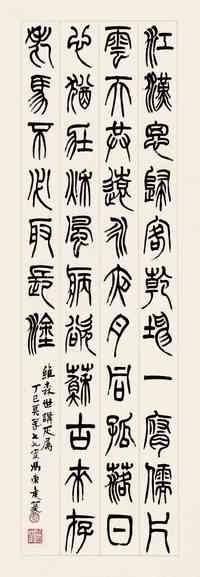 江漢思歸客乾坤一腐儒片
雲天共遠永夜月同孤落日
心猶壯秋風病欲蘇古來存
老馬不必取長塗
維森世講屬
丁巳莫春叟馮康侯篆